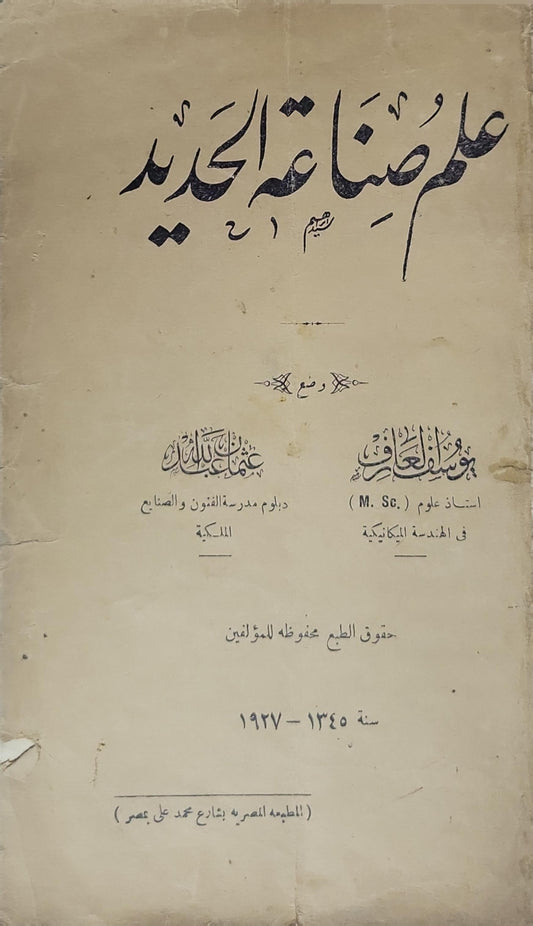 علم صناعة الحديد
وضع
يوسف العارف
استاذ علوم (M. Sc.)
فى الهندسة الميكانيكية
عثمان عبدالله
دبلوم مدرسة الفنون والصنايع
الملكية
حقوق الطبع محفوظه للمؤلفين
سنة ١٣٤٥ – ١٩٢٧
(المطبعه المصريه بشارع محمد على بمصر)